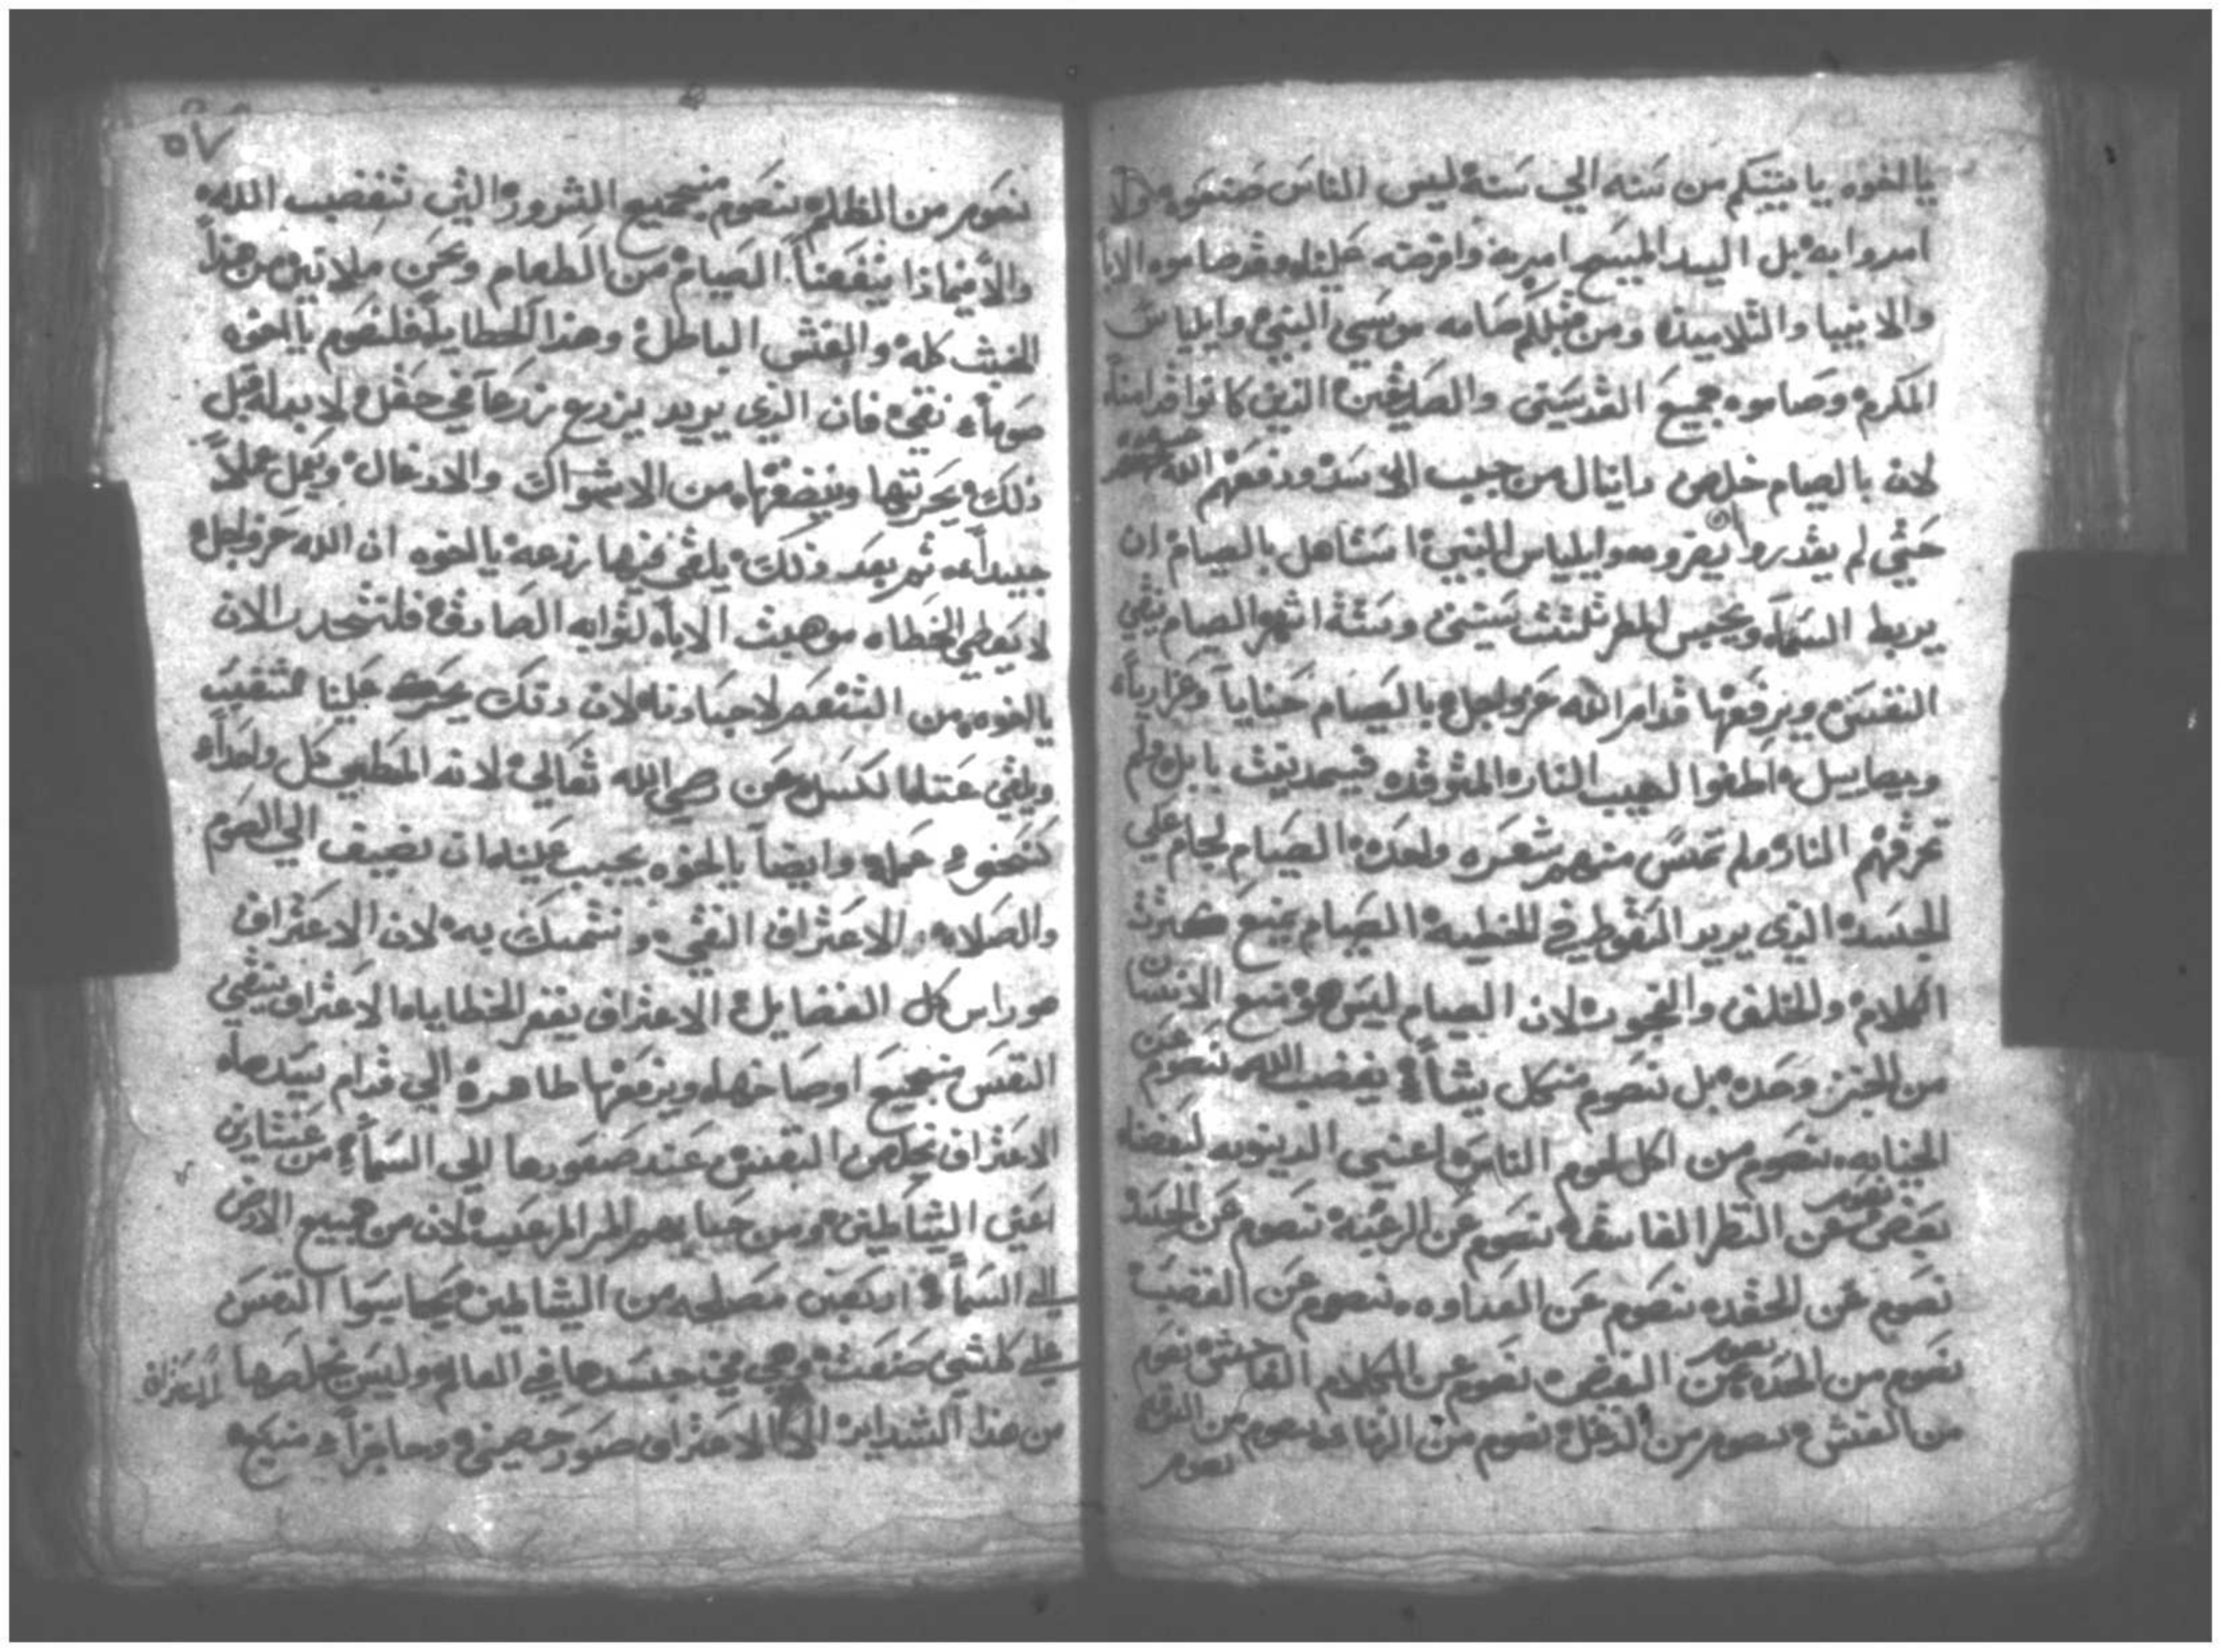 يالخوه ياتيتكم من سنه الي سنة ليس الناس صنعوه ولا
امروا به بل السيد المسيح امر به وافرضه علينا وقد صاموه الابا
والانبيا والتلاميذ ومن قبلكم صامه موسي النبي وايلياس
المكرم وصاموه جميع القديسين والصديقين الذين كانوا قدامنا
لان بالصيام خلص دانيال من جب الاسد ودفعهم الله عنه
حتي لم يقدروا يضروه وايلياس النبي استاهل بالصيام ان
يربط السماء ويحبس المطر ثلثت سنين وستة اشهر الصيام ينقي
النفس ويرفعها قدام الله عز وجل بالصيام حنايا وعزاريا
وميصاييل اطفوا لهيب النار المتوقده في مدينت بابل ولم
تحرقهم النار ولم تمس منهم شعره واحده الصيام لجام علي
الجسد الذي يريد السقوط في الخطية الصيام يمنع كترت
الكلام والخلف لان الصيام ليس هو منع الانسان
من الخبز وحده بل نصوم من كل شياء يغضب الله نصوم عن
الخيانه نصوم من اكل لحوم الناس اعني الدينونه لبعضنا
بعض نصوم عن النظر الفاسق نصوم عن الرغبة نصوم عن الحسد
نصوم عن الحقد نصوم عن العداوه نصوم عن الغضب
نصوم من الحده نصوم عن البغض نصوم عن الكلام الفاحش نصوم
من الغش نصوم من الدغل نصوم من
نصوم
٥٧
نصوم من الظلم نصوم من جميع الشرور التي تغضب الله
والا فيماذا ينفعنا الصيام من الطعام ونحن ملانين من هذا
الخبث كله والغش الباطل وهذا الخطايا فلنصوم يالخوه
صوماً نقي فان الذي يريد يزرع زرعاً في حقل لا بد له قبل
ذلك يحرتها وينضفها من الاشواك والادغال ويعمل عملاً
جيداً ثم بعد ذلك يلقي فيها زرعه يالخوه ان الله عز وجل
لا يعطي الخطاه موهبت الاباء لتوابه الصادق فلنتحدر الان
يالخوه من التنعم لاجسادنا لان
ويلقي عنا الكسل عن وصي الله تعالي لانه المعطي كل واحداً
كنحو عمله وايضاً يالخوه يجب علينا ان نضيف الي الصوم
والصلاه الاعتراف النقي ونتمسك به لان الاعتراف
هو راس كل الفضايل الاعتراف يغفر الخطايا الاعتراف ينقي
النفس من جميع اوصاخها ويرفعها طاهرة الي قدام سيدها
الاعتراف يخلص النفس عند صعودها الي السماء من عشارين
اعني الشياطين ومن حسابهم المر المرعب لان من جميع الارض
الي السماء اربعين مصلحه من الشياطين يحاسبوا النفس
علي كلشي صنعت وهي في جسدها في العالم وليس يخلصها
من هذا الشدايد الا الاعتراف صور حصين وحاجزاً منيع
الاعتراف